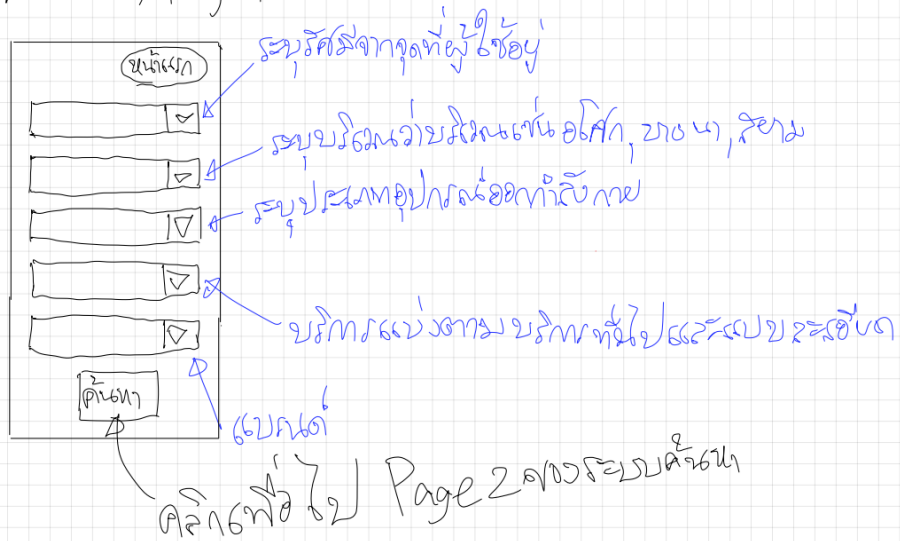 หน้าแรก
ระบุรัศมีจากจุดที่ผู้ใช้อยู่
ระบุบริเวณว่าบริเวณเช่น อโศก, บางนา, สยาม
ระบุประเภทอุปกรณ์ออกกำลังกาย
บริการแบ่งตามบริการทั่วไปและแบบละเอียด
แบรนด์
ค้นหา
คลิกเพื่อไป Page 2 ของระบบค้นหา